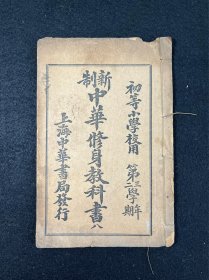 初等小學校用
第三學年
第二學期
新制
中華修身教科書八
上海中華書局發行